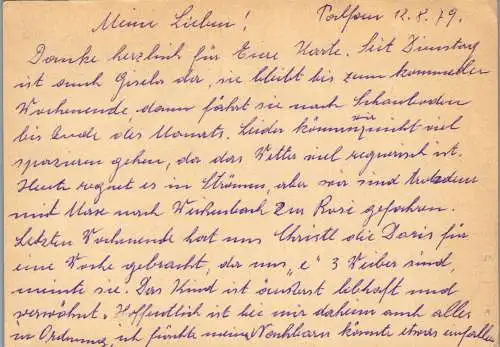 Meine Lieben! Palfau 12.8.79.
Danke herzlich für Eure Karte. Seit Dienstag
ist auch Gisela da, sie bleibt bis zum kommenden
Wochenende dann fährt sie nach
bis Ende des Monats. Leider können wir nicht viel
spazieren gehen, da das Wetter viel regnerisch ist.
Heute regnet es in Strömen, aber wir sind trotzdem
mit Max nach zur Rosi gefahren.
Letzten Wochenende hat uns Christl die Doris für
eine Woche gebracht, da uns "e" 3 Weiber sind,
meinte sie. Das Kind ist äusserst lebhaft und
verwöhnt. Hoffentlich ist bei mir daheim auch alles
in Ordnung, ich fürchte meinen Nachbarn könnte etwas einfallen